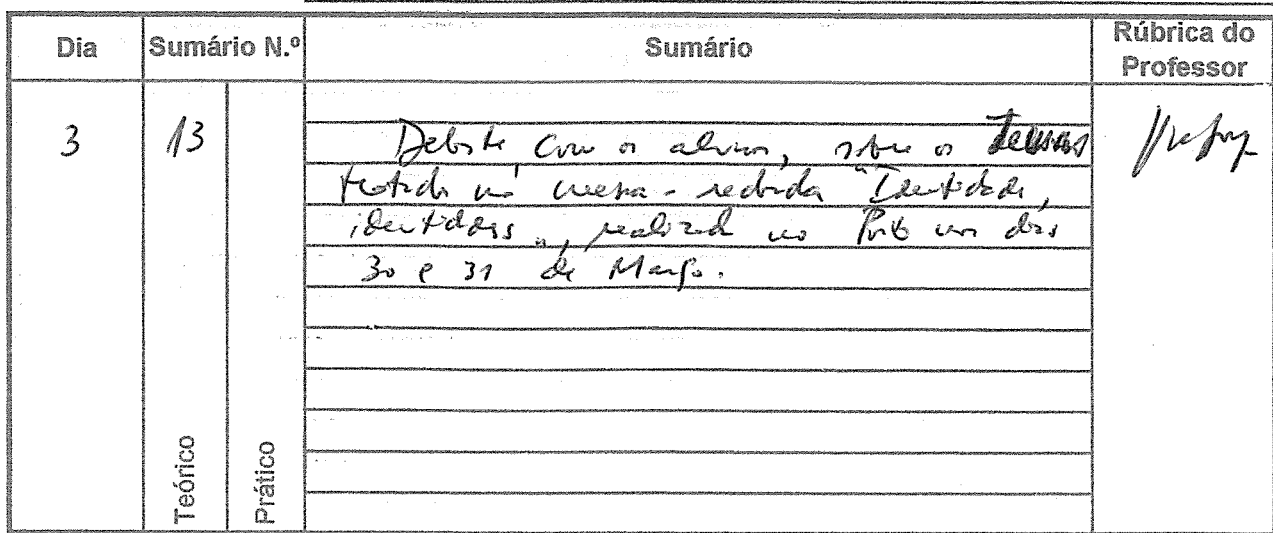 Dia Sumário N.º Sumário Rúbrica do Professor
3 13 Debate com os alunos, sobre os temas
tratados na mesa-redonda "Identidade,
identidades", realizada no Porto nos dias
30 e 31 de Março.
Teórico
Prático